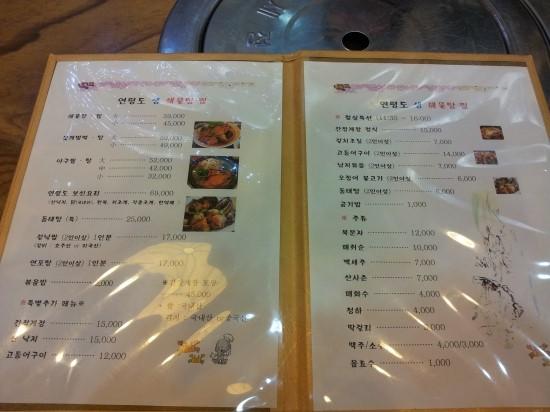 연평도 생 해물탕 찜
해물찜 · 탕 大 59,000
小 45,000
大 52,000
小 49,000
아구찜 · 탕 大 52,000
中 42,000
小 32,000
연평도 보신요리 69,000
동태탕 (특) 25,000
(2인이상) 1인분 17,000
연포탕 (2인이상) 1인분 17,000
볶음밥 2,000
45,000
쌀 : 국내산
김치 : 국내산
※특별추가 메뉴※
간장게장 15,000
산 낙지 15,000
고등어구이 12,000
연평도 생 해물탕 찜
※ 점심특선 (11:30 ~ 16:00)
간장게장 정식 15,000
갈치조림 (2인이상) 7,000
고등어구이 (2인이상) 7,000
낙지볶음 (2인이상) 14,000
오징어 불고기 (2인이상) 6,000
동태탕 (2인이상) 6,000
공기밥 1,000
※ 주류
복분자 12,000
매취순 10,000
백세주 7,000
산사춘 7,000
매화수 5,000
청하 4,000
막걸리 2,000
맥주/소주 4,000/3,000
음료수 1,000